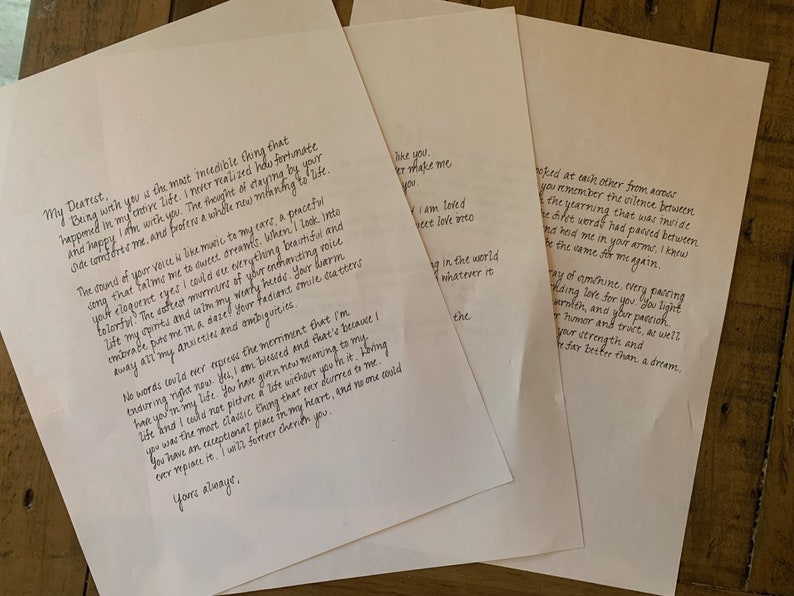 My Dearest,
Being with you is the most incedible thing that
happened in my entire life. I never realized how fortunate
and happy I am with you. The thought of staying by your
side comforts me, and profers a whole new meaning to life.
The sound of your voice is like music to my ears, a peaceful
song that calms me to sweet dreams. When I look into
your eloquent eyes I could see everything beautiful and
colorful. The softest murmurs of your enchanting voice
lift my spirits and calm my weary heeds. Your warm
embrace puts me in a daze. Your radiant smile scatters
away all my anxieties and ambiguities.
No words could ever express the merriment that I'm
enduring right now. Yes, I am blessed and that's because I
have you in my life. You have given new meaning to my
life and I could not picture a life without you in it. Loving
you was the most classic thing that ever ourred to me.
You have an exceptional place in my heart, and no one could
ever replace it. I will forever cherish you.
Yours always,
like you.
er make me
you.
I am loved
weet love into
ng in the world
whatever it
the
ooked at each other from across
you remember the silence between
the yearning that was inside
he first words had passed between
and held me in your arms, I knew
be the same for me again.
ray of sunshine, every passing
nding love for you. You light
warmth, and your passion
r humor and trust, as well
your strength and
e far better than a dream,